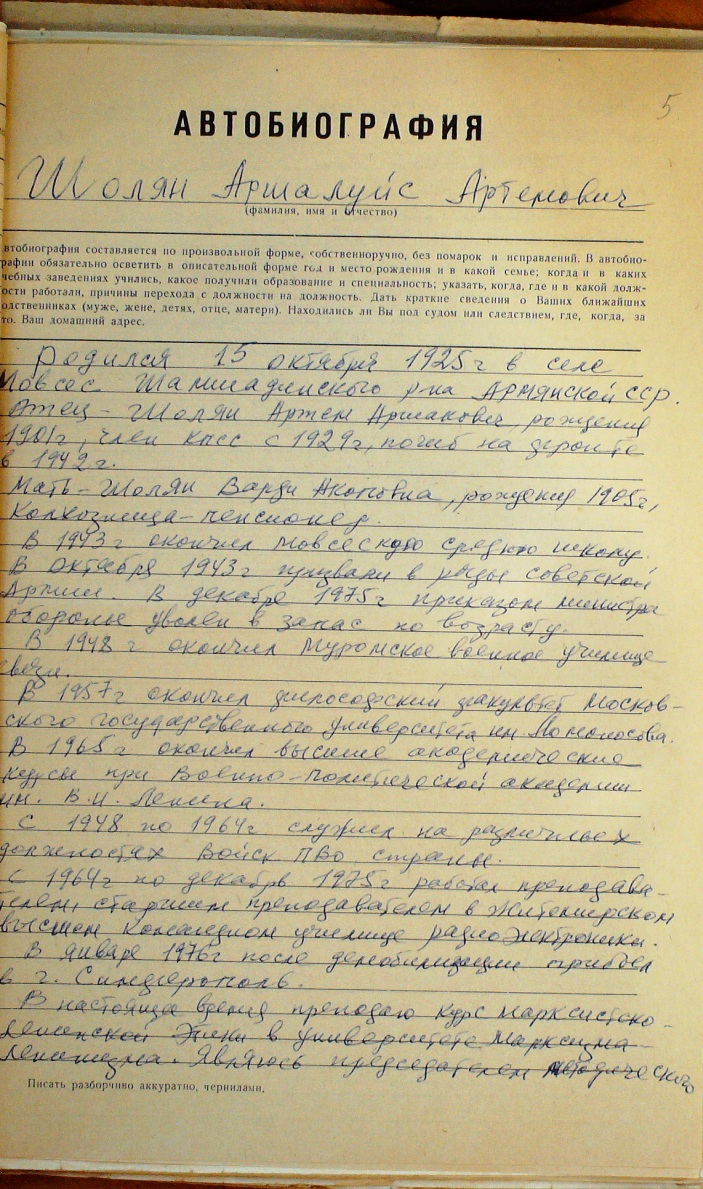 5
АВТОБИОГРАФИЯ
Шолян Аршалуйс Артемович
(фамилия, имя и отчество)
втобиография составляется по произвольной форме, собственноручно, без помарок и исправлений. В автобио-
рафии обязательно осветить в описательной форме год и место рождения и в какой семье; когда и в каких
чебных заведениях учились, какое получили образование и специальность; указать, когда, где и в какой долж-
ости работали, причины перехода с должности на должность. Дать краткие сведения о Ваших ближайших
одственниках (муже, жене, детях, отце, матери). Находились ли Вы под судом или следствием, где, когда, за
то. Ваш домашний адрес.
Родился 15 октября 1925г в селе
Мовсес Шамшадинского р-на Армянской ССР.
Отец - Шолян Артем Аршакович, рождения
1901г, член КПСС с 1929г, погиб на фронте
в 1942г.
Мать - Шолян Варди Акоповна, рождения 1905г,
колхозница-пенсионер.
В 1943г окончил Мовсесскую среднюю школу.
В октября 1943г призвали в ряды советской
Армии. В декабре 1975г приказом министра
обороны уволен в запас по возрасту.
В 1948 г окончил Муромское военное училище
связи.
В 1957г окончил философский факультет Москов-
ского государственного университета им. Ломоносова.
В 1965г окончил высшие академические
курсы при Военно-политической академии
им. В.И. Ленина.
С 1948 по 1964г служил на различных
должностях войск ПВО страны.
С 1964г по декабрь 1975г работал преподава-
телем, старшим преподавателем в Житомирском
высшем командном училище радиоэлектроники.
В январе 1976г после демобилизации прибыл
в г. Симферополь.
В настояща время преподаю курс марксистско-
ленинской этики в университете Марксизма-
Ленинизма. Являюсь председателем методического
Писать разборчиво аккуратно, чернилами.